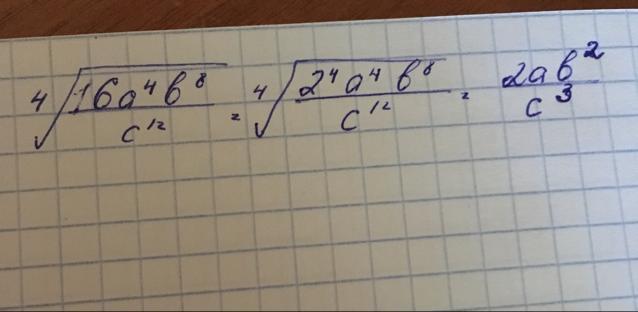 ⁴√(16a⁴b⁸/c¹²) = ⁴√(2⁴a⁴b⁸/c¹²) = 2ab²/c³